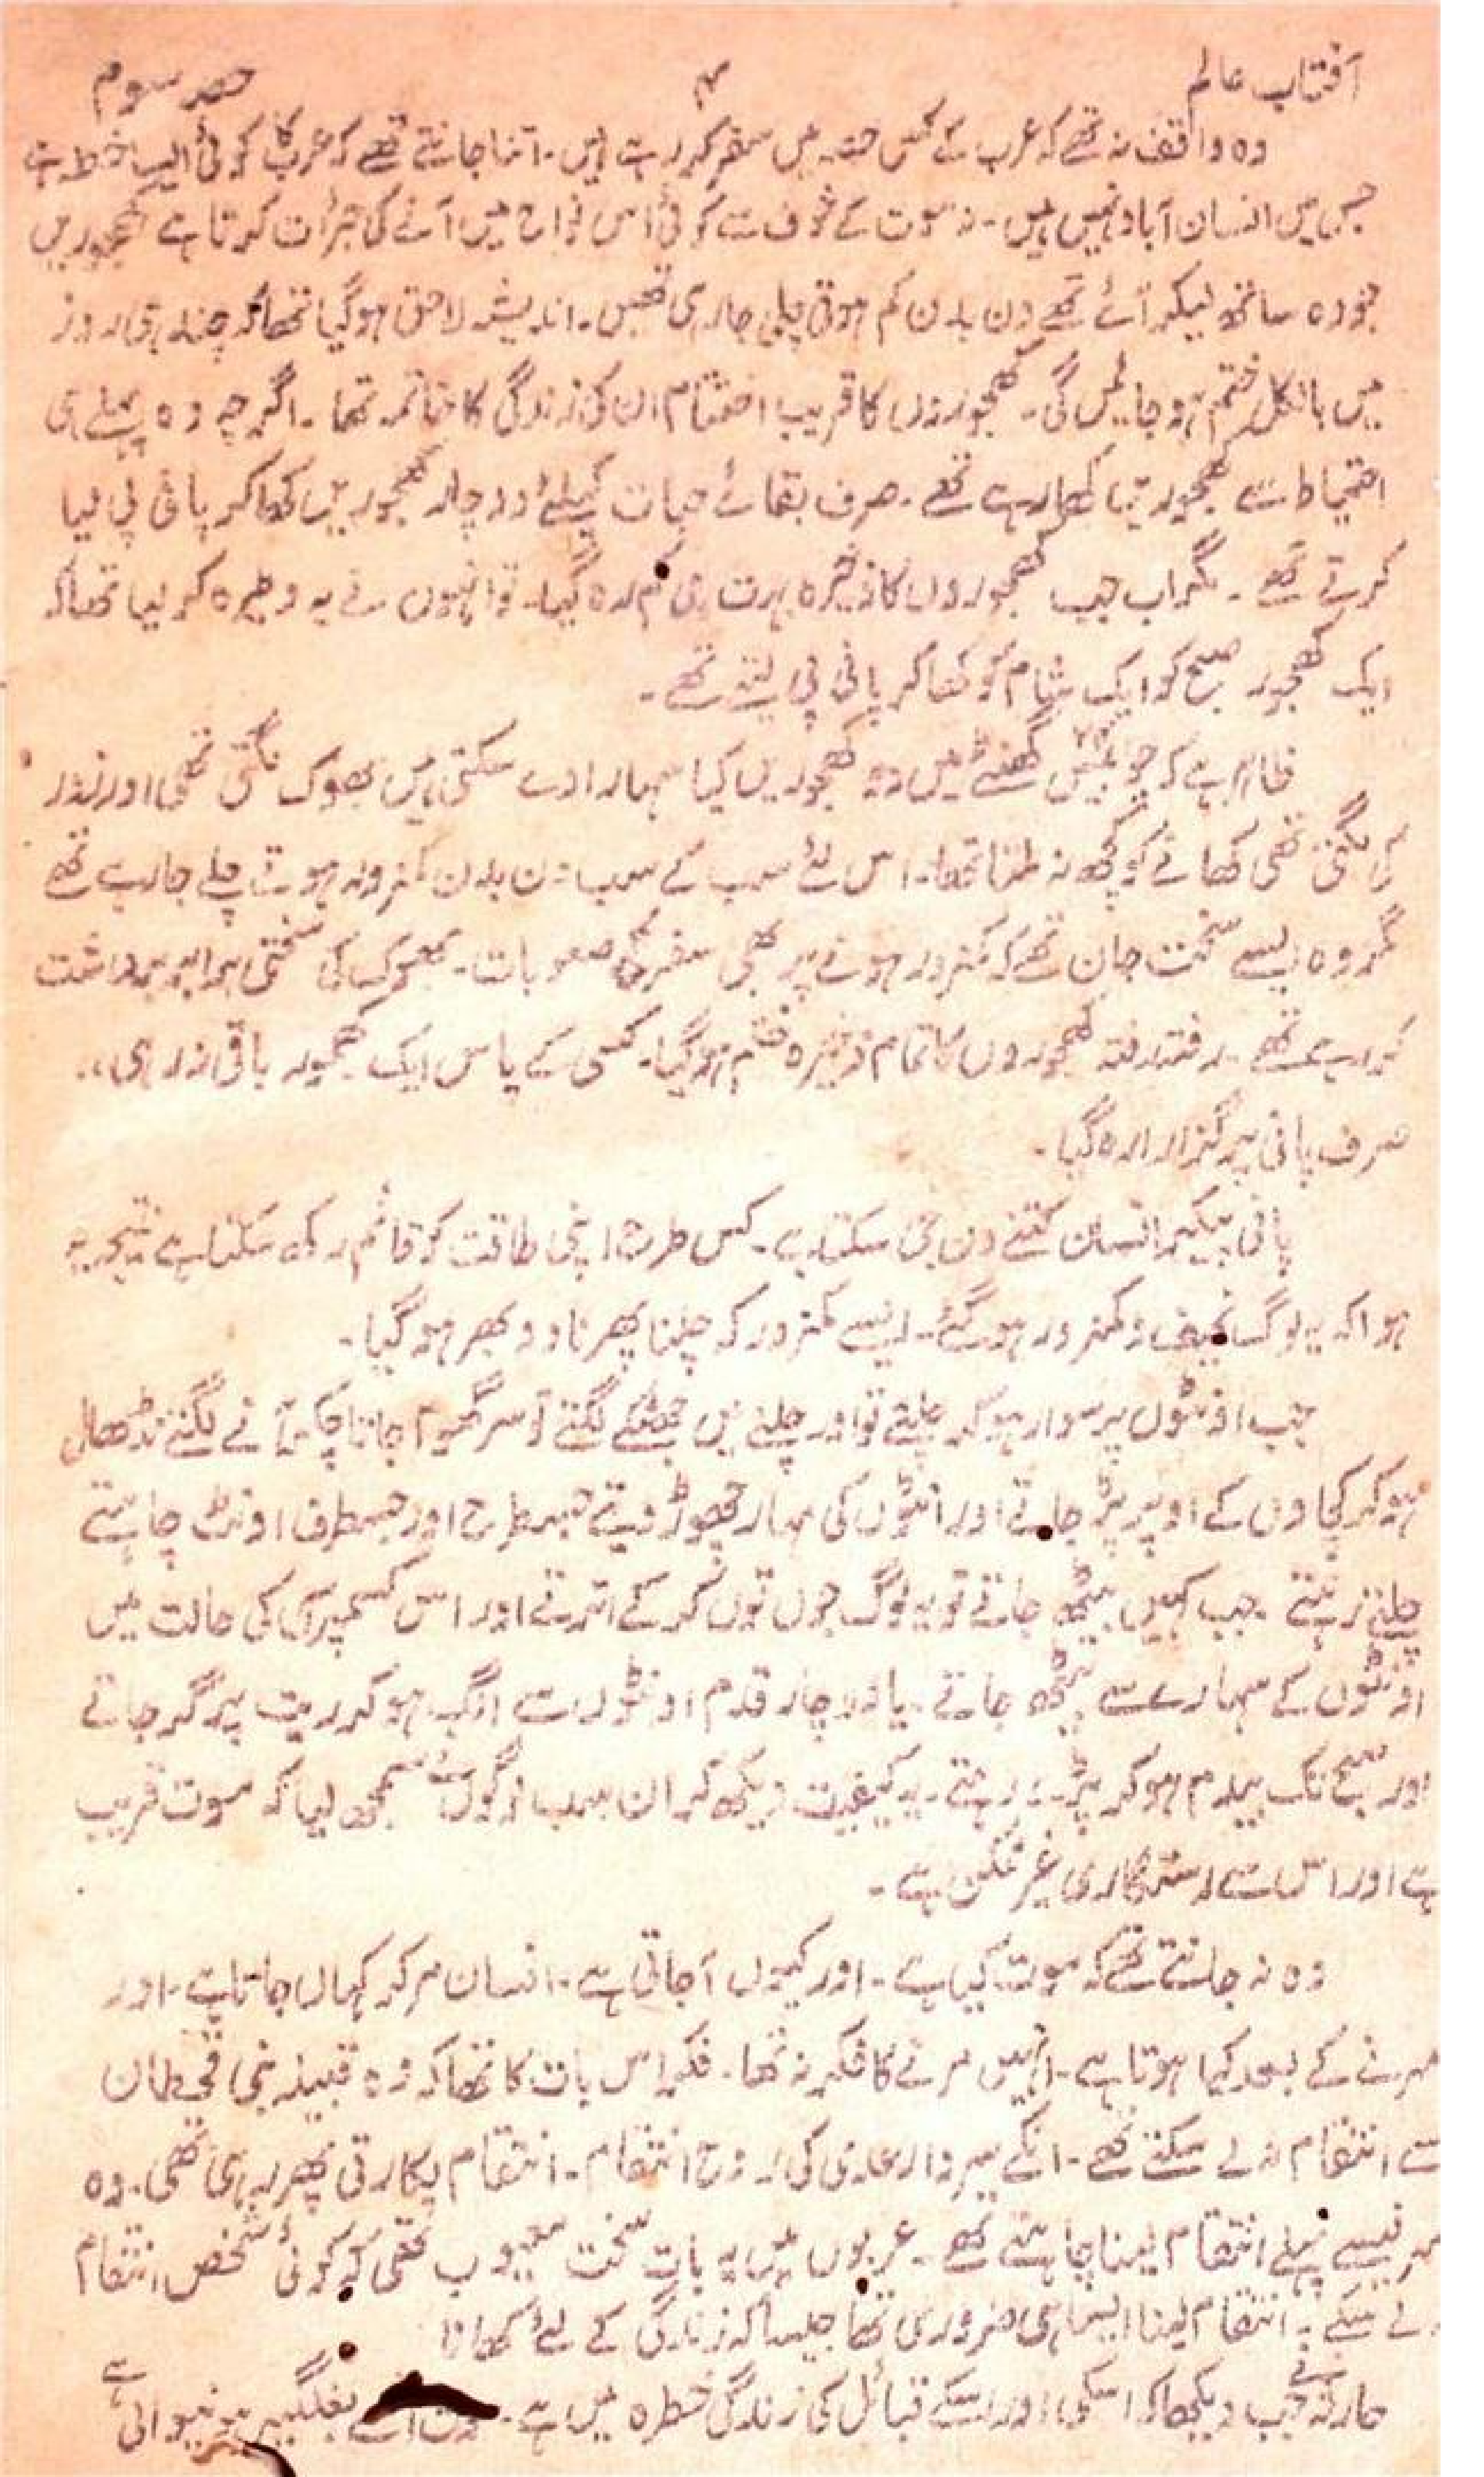 آفتاب عالم ۴ حصہ سوم
وہ واقف نہ تھے کہ عرب کے کس حصہ میں سفر کر رہے ہیں۔ اتنا جانتے تھے کہ عرب کا کوئی ایسا خطہ ہے
جس میں انسان آباد نہیں ہیں۔ نہ موت کے خوف سے کوئی اس نواح میں آنے کی جرأت کرتا ہے کھجوریں
جو وہ ساتھ لیکر آئے تھے دن بدن کم ہوتی چلی جا رہی تھیں۔ اندیشہ لاحق ہو گیا تھا کہ چند ہی روز
میں بالکل ختم ہو جائیں گی۔ کھجوروں کا قریب اختتام ان کی زندگی کا خاتمہ تھا۔ اگرچہ وہ پہلے ہی
احتیاط سے کھجوریں کھا رہے تھے۔ صرف بقائے حیات کیلئے دو چار کھجوریں کھا کر پانی پی لیا
کرتے تھے۔ مگر اب جب کھجوروں کا ذخیرہ بہت ہی کم رہ گیا۔ تو انہوں نے یہ وطیرہ کر لیا تھا کہ
ایک کھجور صبح کو ایک شام کو کھا کر پانی پی لیتے تھے۔
ظاہر ہے کہ چوبیس گھنٹے میں دو کھجوریں کیا سہارا دے سکتی ہیں بھوک لگتی تھی اور زور
کی لگتی تھی کھانے کو کچھ نہ ملتا تھا۔ اس لئے سب کے سب دن بدن کمزور ہوتے چلے جا رہے تھے
مگر وہ ایسے سخت جان تھے کہ کمزور ہونے پر بھی سفر کی صعوبات۔ بھوک کی سختی برابر برداشت
کر رہے تھے۔ رفتہ رفتہ کھجوروں کا تمام ذخیرہ ختم ہو گیا۔ کسی کے پاس ایک کھجور باقی نہ رہی۔
صرف پانی پر گزارا رہ گیا۔
پانی پیکر انسان کتنے دن جی سکتا ہے۔ کس طرح اپنی طاقت کو قائم رکھ سکتا ہے نتیجہ یہ
ہوا کہ یہ لوگ نحیف و کمزور ہو گئے۔ ایسے کمزور کہ چلنا پھرنا دوبھر ہو گیا۔
جب اونٹوں پر سوار ہو کر چلتے تو اور چلنے میں جھٹکے لگتے تو سر گھوم جاتا چکر آنے لگتے نڈھال
ہو کر کجاوں کے اوپر پڑ جاتے اور انٹوں کی مہار چھوڑ دیتے جسطرح اور جسطرف اونٹ چاہتے
چلتے رہتے۔ جب کہیں بیٹھ جاتے تو یہ لوگ جوں توں کر کے اترتے اور اس کسمپرسی کی حالت میں
اونٹوں کے سہارے سے بیٹھ جاتے۔ یا دو چار قدم اونٹوں سے الگ ہو کر ریت پر گر جاتے
اور صبح تک بیدم ہو کر پڑے رہتے۔ یہ کیفیت دیکھ کر ان سب لوگوں نے سمجھ لیا کہ موت قریب
ہے اور اس سے رستگاری غیر ممکن ہے۔
وہ نہ جانتے تھے کہ موت کیا ہے۔ اور کیوں آ جاتی ہے۔ انسان مر کر کہاں جاتا ہے۔ اور
مرنے کے بعد کیا ہوتا ہے۔ انہیں مرنے کا فکر نہ تھا۔ فکر اس بات کا تھا کہ وہ قبیلہ بنی قحطان
سے انتقام نہ لے سکتے تھے۔ انکے سردار عدی کی روح انتقام۔ انتقام پکارتی پھر رہی تھی۔ وہ
مرنیسے پہلے انتقام لینا چاہتے تھے۔ عربوں میں یہ بات سخت معیوب تھی کہ کوئی شخص انتقام
نہ لے سکے۔ انتقام لینا ایسا ہی ضروری تھا جیسا کہ زندگی کے لئے کھانا
حارث نے جب دیکھا کہ اسکی اور اسکے قبائل کی زندگی خطرہ میں ہے۔ موت اسسے بغلگیر ہونیوالی ہے